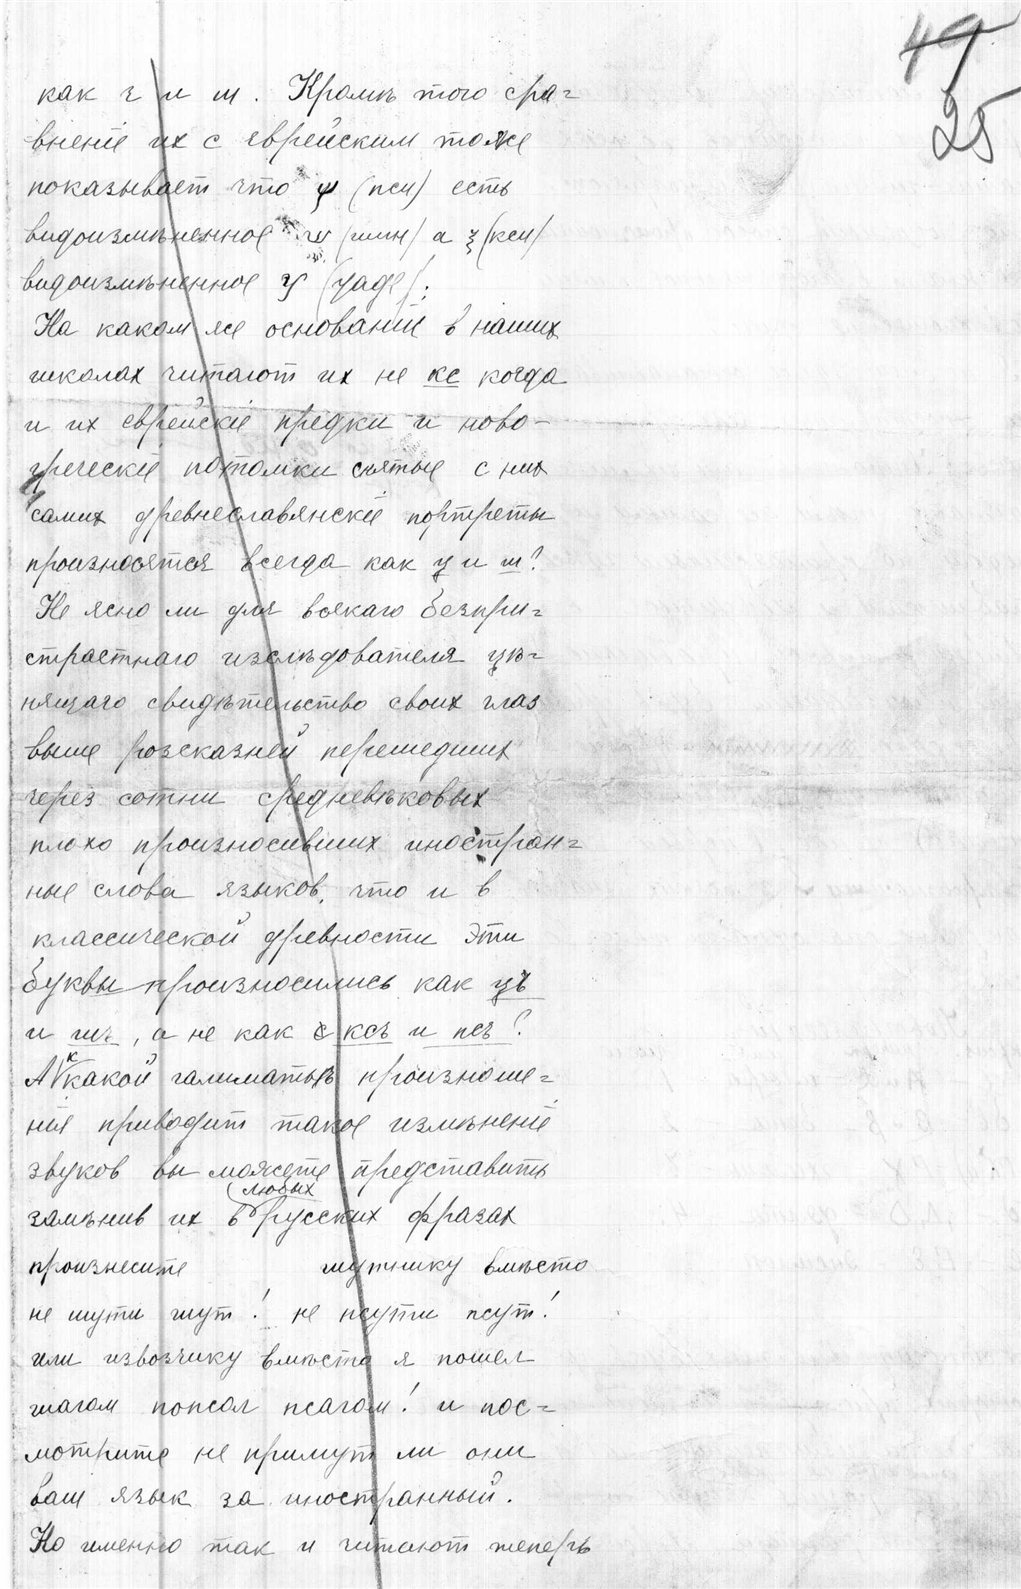 49
25
как ч и ш. Кромѣ того сра=
вненіе их с еврейским тоже
показывает что ψ (пси) есть
видоизмѣненное ש (шин) а ξ (кси)
видоизмѣненное צ (цаде);
На каком же основаніи в наших
школах читают их не кс когда
и их еврейскіе предки и ново-
греческіе потомки снятые с них
самих древнеславянскіе портреты
произносятся всегда как ц и ш?
Не ясно ли для всякаго безпри=
страстнаго изслѣдователя цѣ=
нящаго свидѣтельство своих глаз
выше розсказней перешедших
через сотни средневѣковых
плохо произносивших иностран=
ные слова языков, что и в
классической древности эти
буквы произносились как цъ
и шъ, а не как ксъ и псъ?
А к какой галиматьѣ произноше=
нія приводит такое измѣненіе
звуков вы можете представить
замѣнив их в любых русских фразах
произнесите шутнику вмѣсто
не шути шут! не псути псут!
или извозчику вмѣсто я пошел
шагом попсол псагом! и пос=
мотрите не примут ли они
ваш язык за иностранный.
Но именно так и читают теперь